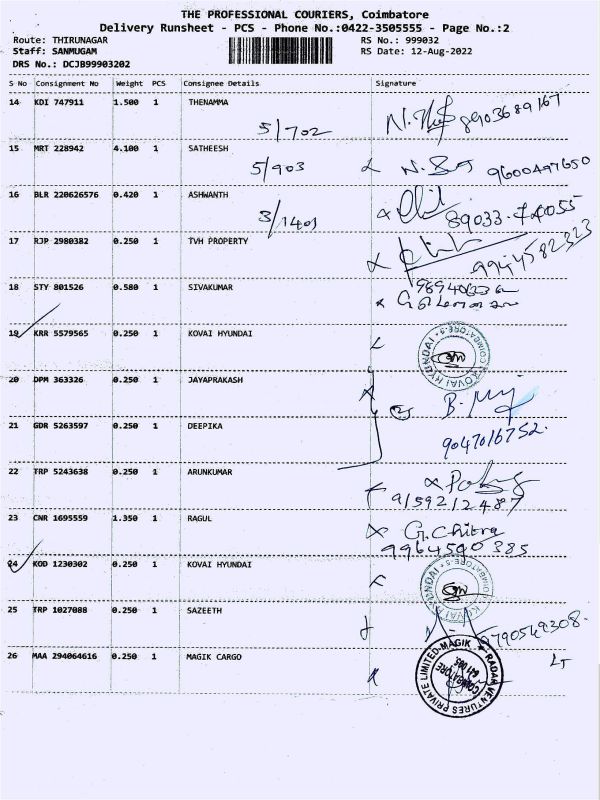 THE PROFESSIONAL COURIERS, Coimbatore
Delivery Runsheet - PCS - Phone No.:0422-3505555 - Page No.:2
Route: THIRUNAGAR RS No.: 999032
Staff: SANMUGAM RS Date: 12-Aug-2022
DRS No.: DCJB99903202
S No Consignment No Weight PCS Consignee Details Signature
14 KDI 747911 1.500 1 THENAMMA 8903689167
5/702
15 MRT 228942 4.100 1 SATHEESH
5/903 9600497650
16 BLR 220626576 0.420 1 ASHWANTH
3/1401 89033-74055
17 RJP 2980382 0.250 1 TVH PROPERTY
9944582323
18 STY 801526 0.580 1 SIVAKUMAR
19 KRR 5579565 0.250 1 KOVAI HYUNDAI
KOVAI HYUNDAI COIMBATORE-5
20 DPM 363326 0.250 1 JAYAPRAKASH
21 GDR 5263597 0.250 1 DEEPIKA
9047016752
22 TRP 5243638 0.250 1 ARUNKUMAR
9159212487
23 CNR 1695559 1.350 1 RAGUL G.Chitra
9964590385
24 KOD 1230302 0.250 1 KOVAI HYUNDAI
KOVAI HYUNDAI COIMBATORE-5
25 TRP 1027088 0.250 1 SAZEETH
9790549308
26 MAA 294064616 0.250 1 MAGIK CARGO
RADAR VENTURES PRIVATE LIMITED-MAGIK
COIMBATORE
641 005